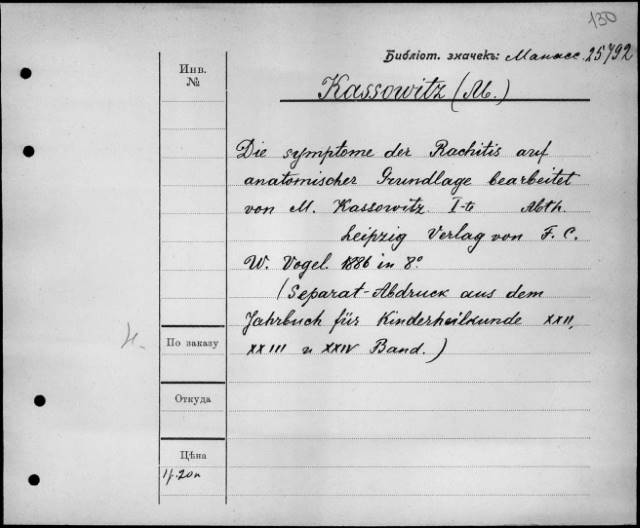 130
Библіот. значекъ: Манасс. 25792
Инв.
№
Kassowitz (M.)
Die symptome der Rachitis auf
anatomischer Grundlage bearbeitet
von M. Kassowitz. I-te Abth.
Leipzig Verlag von F. C.
W. Vogel. 1886 in 8°.
(Separat-Abdruck aus dem
Jahrbuch für Kinderheilkunde XXII,
XXIII u XXIV Band.)
По заказу
Откуда
Цѣна
1р. 20к